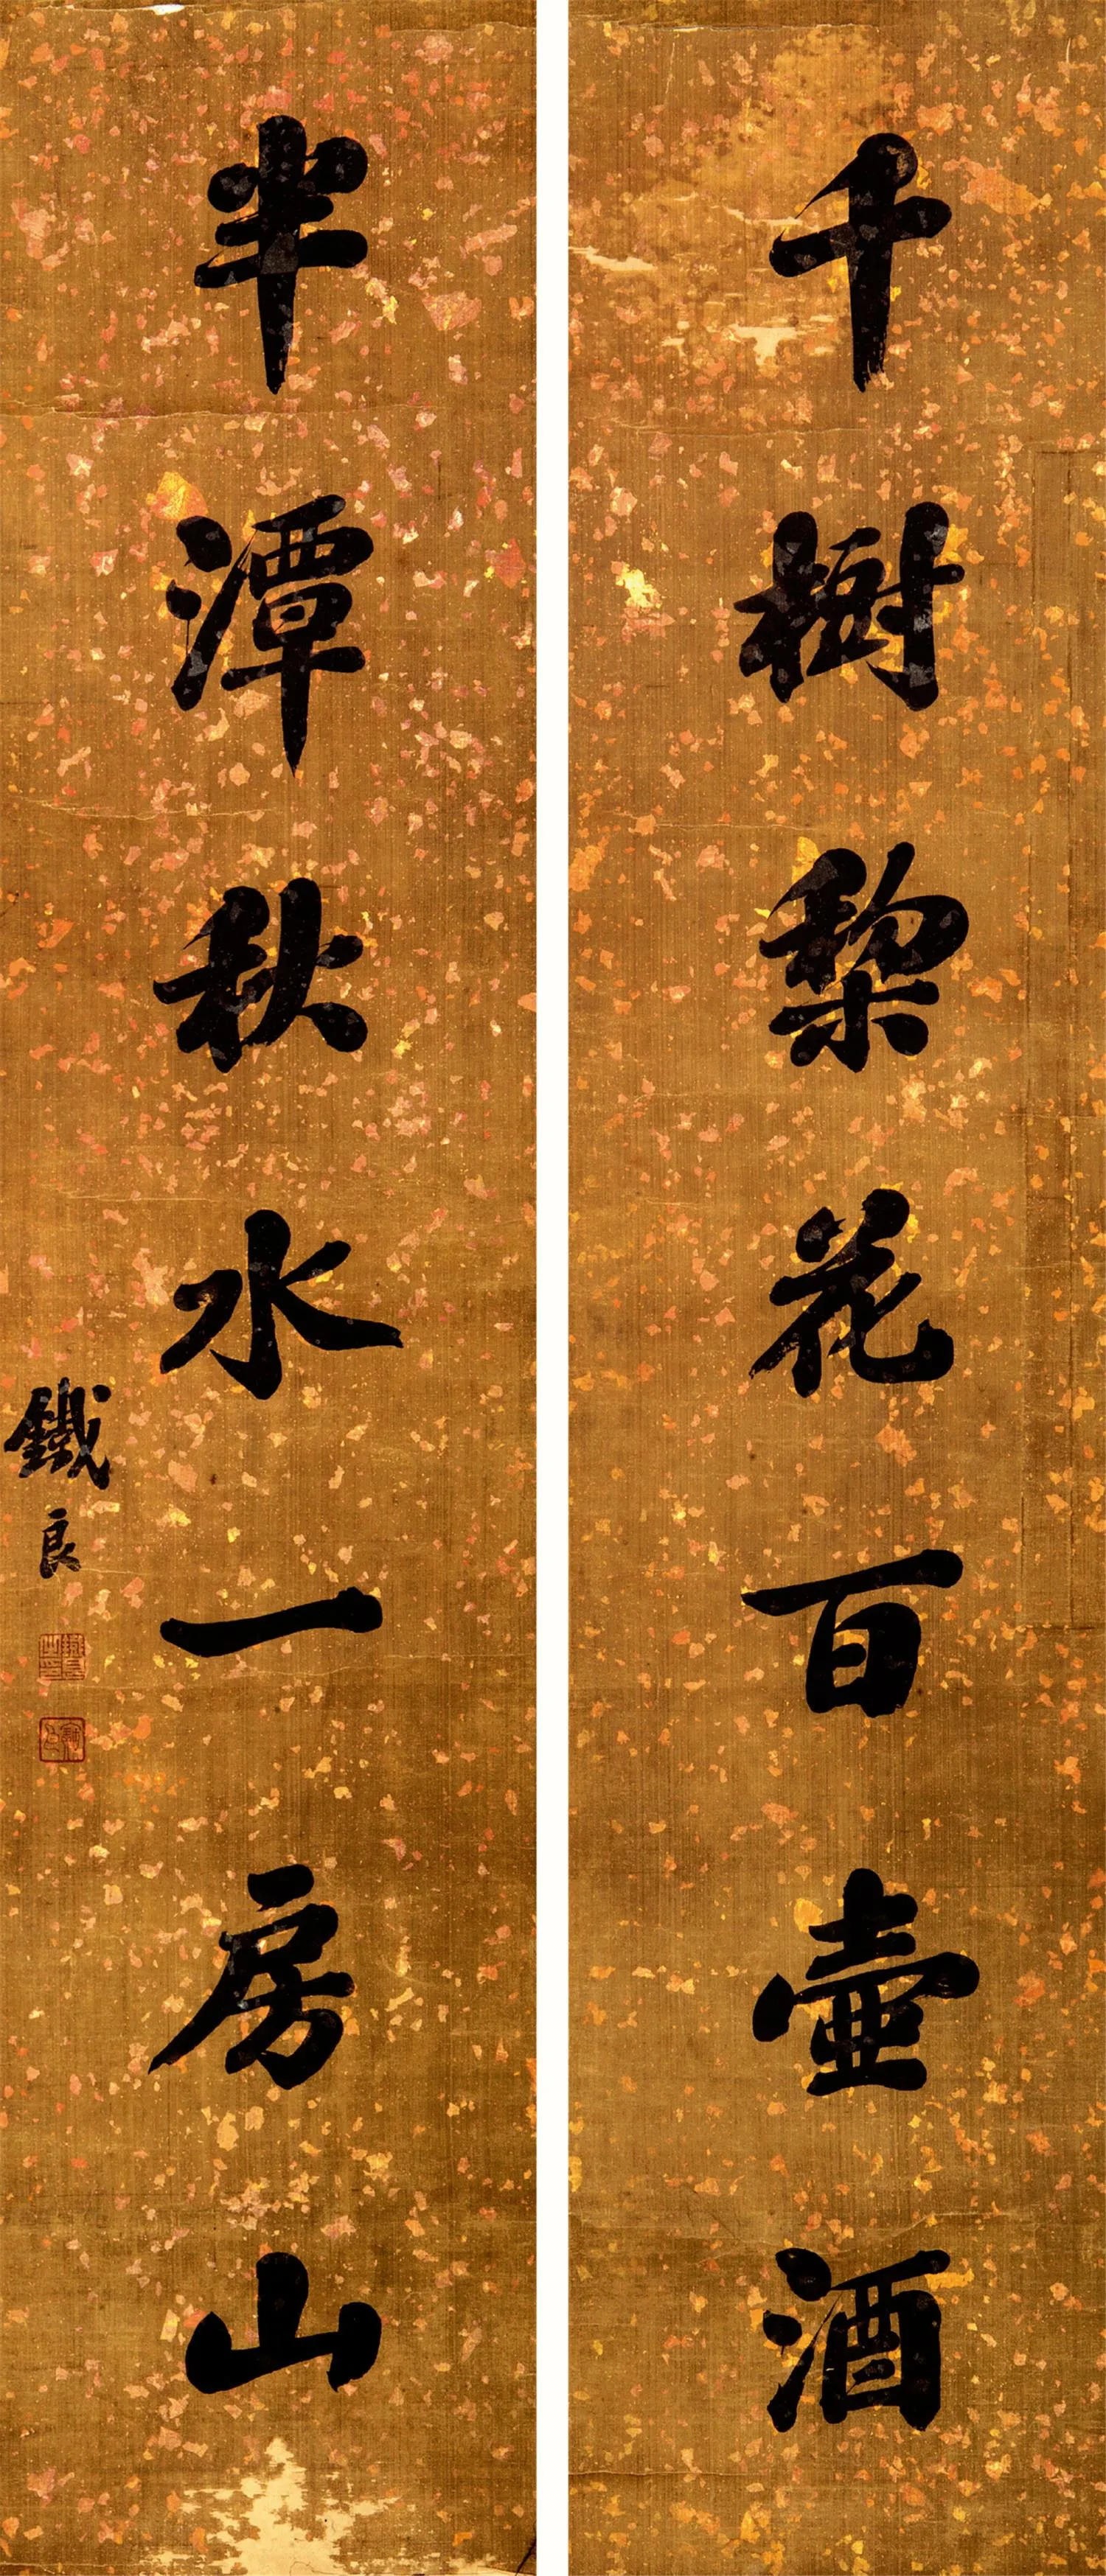 千樹棃花百壺酒
半潭秋水一房山
鐵良